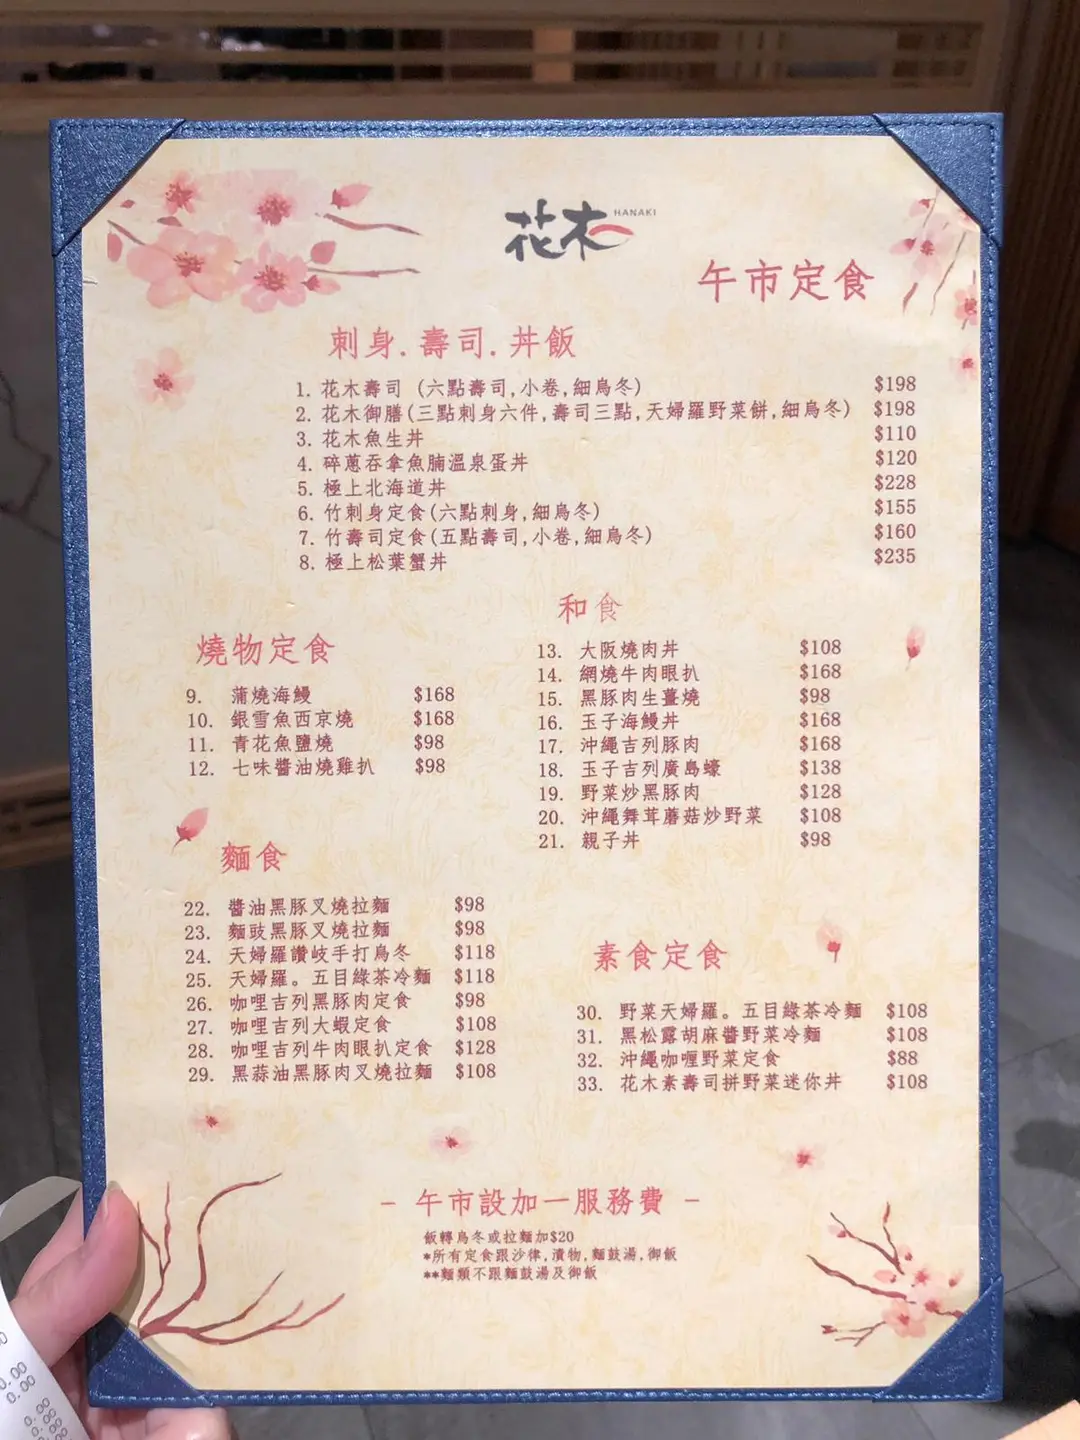 花木 HANAKI
午市定食
刺身.壽司.丼飯
1. 花木壽司 (六點壽司,小卷,細烏冬) $198
2. 花木御膳(三點刺身六件,壽司三點,天婦羅野菜餅,細烏冬) $198
3. 花木魚生丼 $110
4. 碎蔥吞拿魚腩溫泉蛋丼 $120
5. 極上北海道丼 $228
6. 竹刺身定食(六點刺身,細烏冬) $155
7. 竹壽司定食(五點壽司,小卷,細烏冬) $160
8. 極上松葉蟹丼 $235
燒物定食
9. 蒲燒海鰻 $168
10. 銀雪魚西京燒 $168
11. 青花魚鹽燒 $98
12. 七味醬油燒雞扒 $98
和食
13. 大阪燒肉丼 $108
14. 網燒牛肉眼扒 $168
15. 黑豚肉生薑燒 $98
16. 玉子海鰻丼 $168
17. 沖繩吉列豚肉 $168
18. 玉子吉列廣島蠔 $138
19. 野菜炒黑豚肉 $128
20. 沖繩舞茸蘑菇炒野菜 $108
21. 親子丼 $98
麵食
22. 醬油黑豚叉燒拉麵 $98
23. 麵豉黑豚叉燒拉麵 $98
24. 天婦羅讚岐手打烏冬 $118
25. 天婦羅。五目綠茶冷麵 $118
26. 咖哩吉列黑豚肉定食 $98
27. 咖哩吉列大蝦定食 $108
28. 咖哩吉列牛肉眼扒定食 $128
29. 黑蒜油黑豚肉叉燒拉麵 $108
素食定食
30. 野菜天婦羅。五目綠茶冷麵 $108
31. 黑松露胡麻醬野菜冷麵 $108
32. 沖繩咖喱野菜定食 $88
33. 花木素壽司拼野菜迷你丼 $108
- 午市設加一服務費 -
飯轉烏冬或拉麵加$20
*所有定食跟沙律,漬物,麵鼓湯,御飯
**麵類不跟麵鼓湯及御飯